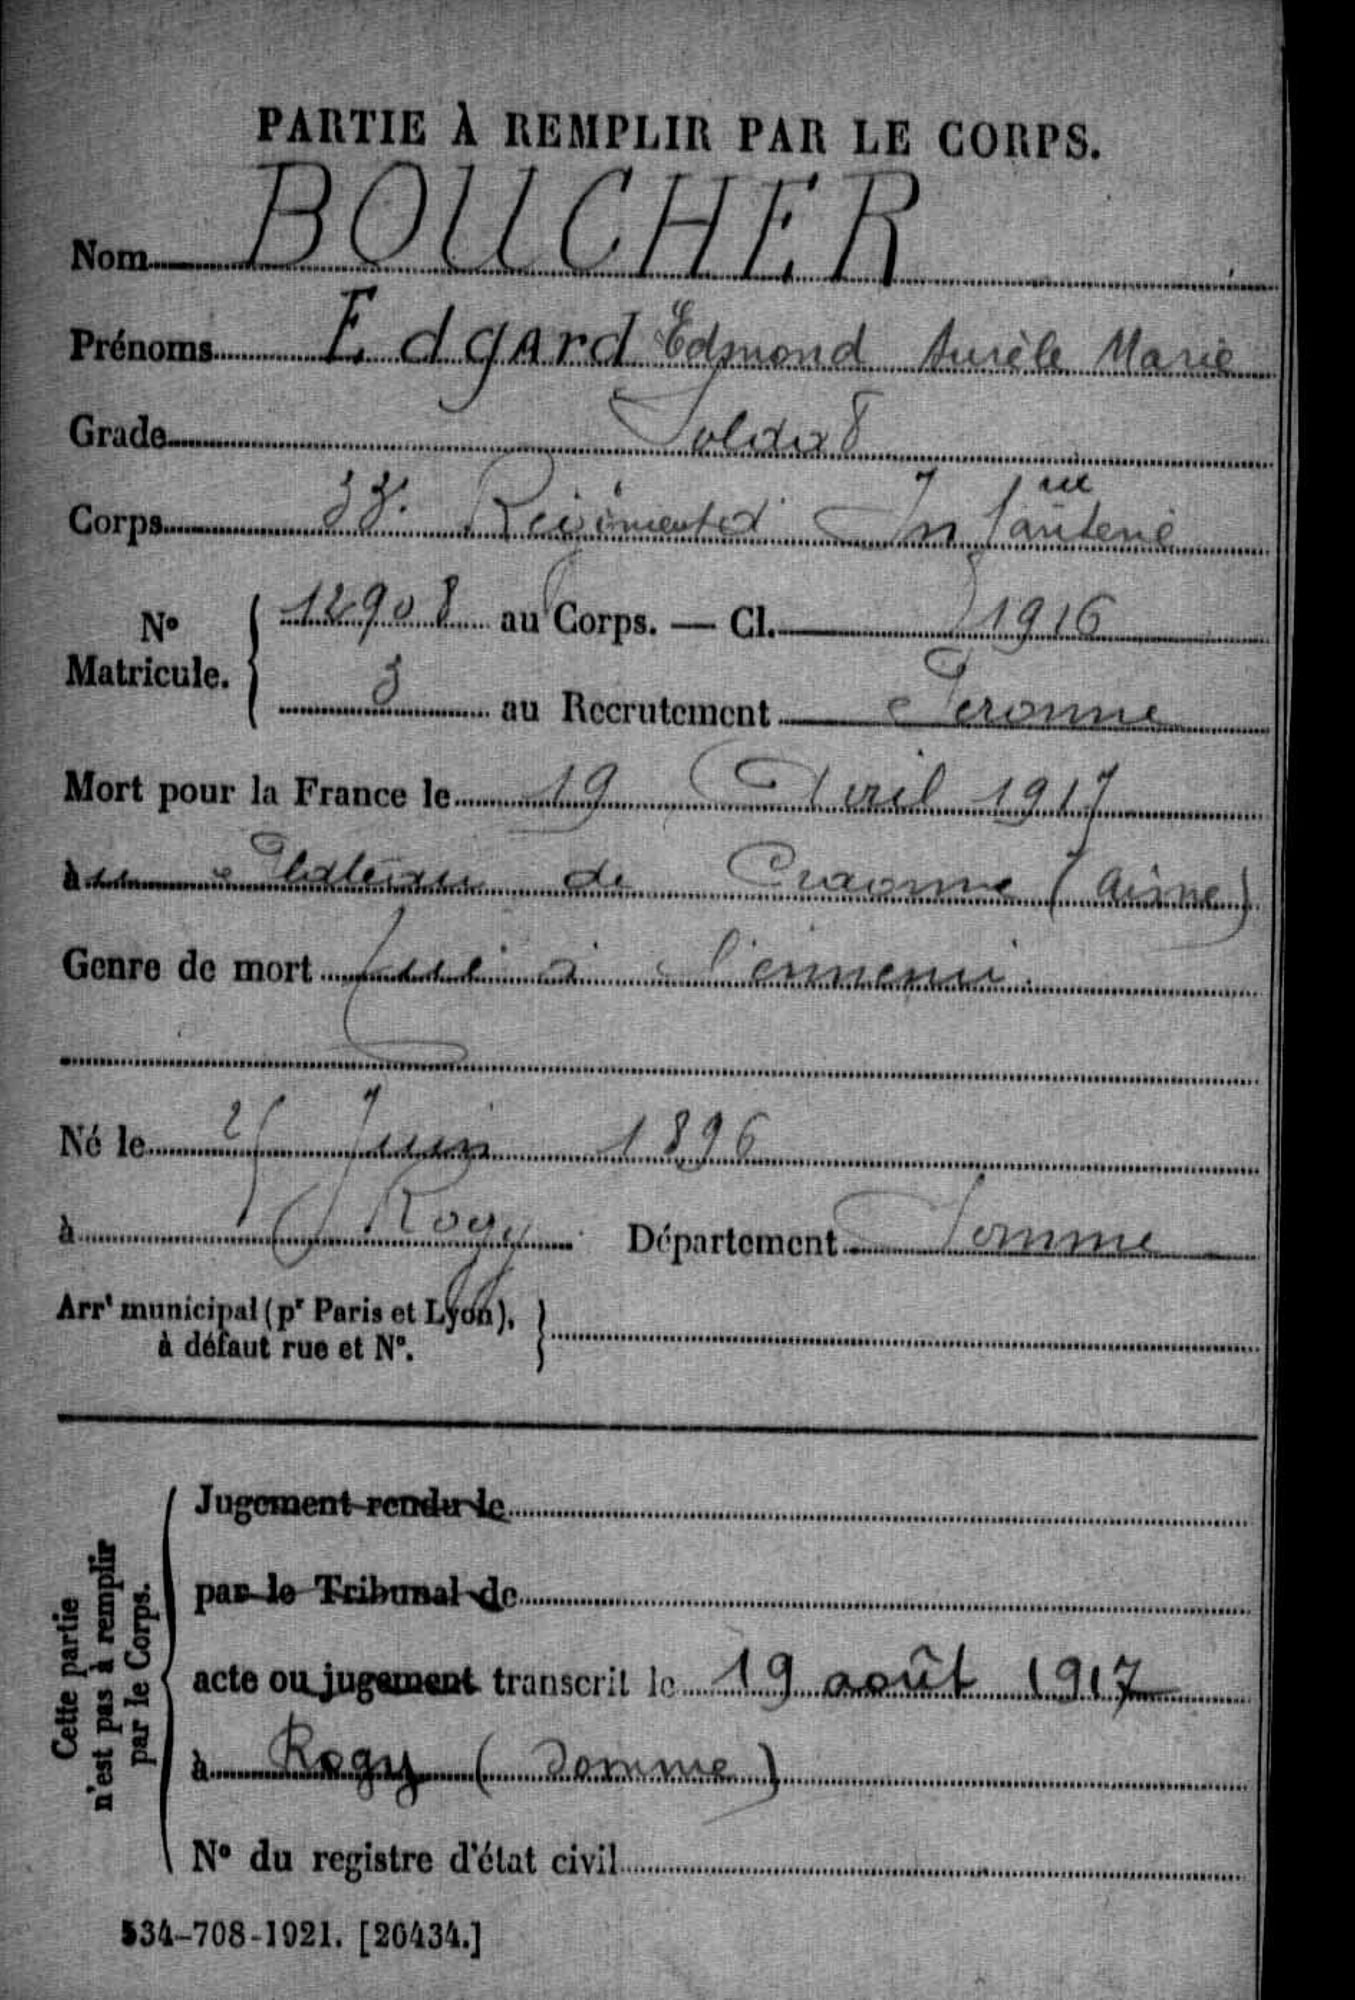 PARTIE À REMPLIR PAR LE CORPS.
Nom BOUCHER
Prénoms Edgard Edmond Aurèle Marie
Grade Soldat
Corps 33e Régiment d'Infanterie
No Matricule. 12908 au Corps. — Cl. 1916
3 au Recrutement Peronne
Mort pour la France le 19 Avril 1917
au Plateau de Craonne (Aisne)
Genre de mort Tué à l'ennemi.
Né le 25 Juin 1896
à Rogy Département Somme
Arrt municipal (pr Paris et Lyon),
à défaut rue et No.
Cette partie
n'est pas à remplir
par le Corps.
Jugement rendu le
par le Tribunal de
acte ou jugement transcrit le 19 août 1917
à Rogy (Somme)
No du registre d'état civil
534-708-1921. [26434.]